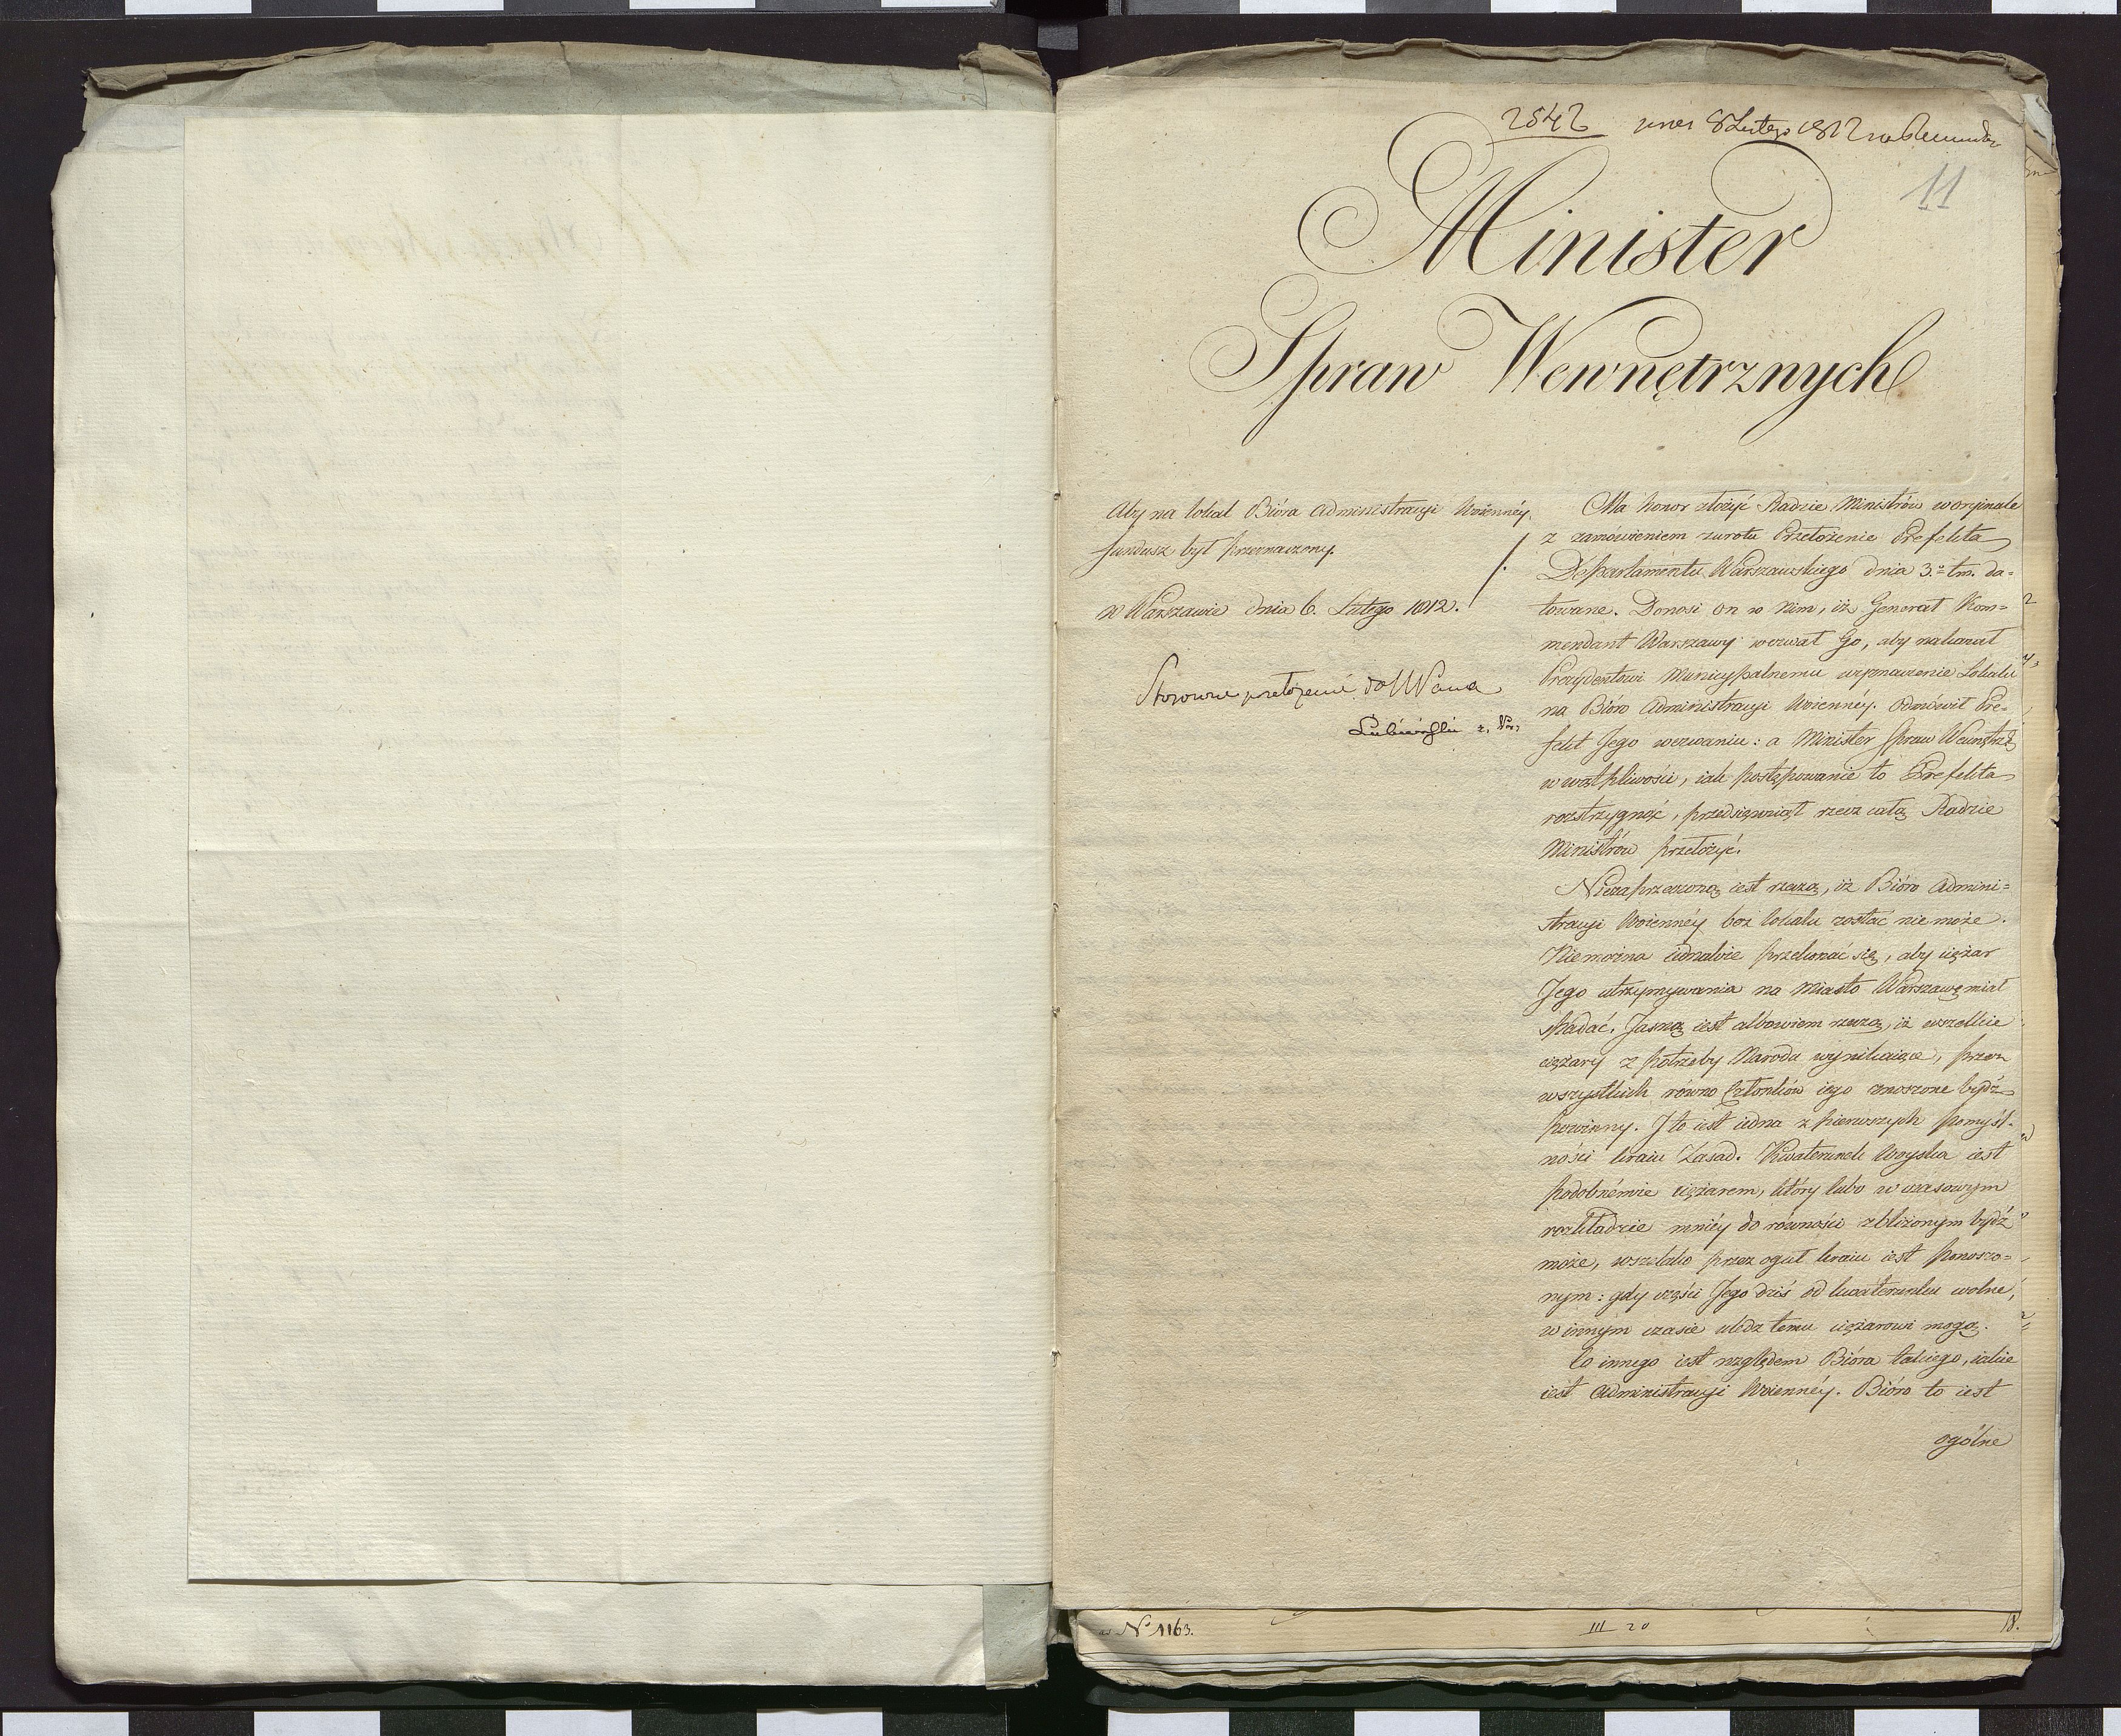 2542 pres 8 Lutego 1812
11
Minister
Spraw Wewnętrznych
Aby na lokal Bióra Administracyi Woienney
fundusz był przeznaczony.
w Warszawie dnia 6. Lutego 1812.
Stosowne przełożenie do
Ma honor złożyć Radzie Ministrów w oryjinale
z zamówieniem zwrotu Przełożenie Prefekta
Départamentu Warszawskiego dnia 3.º t.m. da=
towane. Donosi on w nim, iż Generał Kom=
mendant Warszawy wezwał Go, aby nakazał
Prezydentowi Municypalnemu wyznaczenie Lokalu
na Bióro Administracyi Woiennéy. Odmówił Pre=
fekt Jego wezwaniu: a Minister Spraw Wewnętrz:
w wątpliwości, iak postępowanie to Prefekta
rozstrzygnąć, przedsięwziął rzecz całą Radzie
Ministrów przełożyć.
Niezaprzeczoną iest rzeczą, iż Bióro Admini=
stracyi Woiennéy bez lokalu zostać nie może.
Niemożna iednakże przekonać się, aby ciężar
Jego utrzymywania na Miasto Warszawę miał
spadać. Jasną iest albowiem rzeczą, iż wszelkie
ciężary z potrzeby Narodu wynikaiące, przez
wszystkich równo Członków iego znoszone bydź
powinny. J to iest iedna z pierwszych pomyśl=
ności kraiu Zasad. Kwaterunek Woyska iest
podobnémże ciężarem, który lubo w czasowym
rozkładzie mniéy do równości zbliżonym bydź
może, wszelako przez ogół kraiu iest ponoszo=
nym: gdy części Jego dziś od kwaterunku wolne,
w innym czasie uledz temu ciężarowi mogą.
Co innego iest względem Bióra takiego, iakie
iest Administracyi Woiennéy. Bióro to iest
ogólne
Nº 1163.
III 20
18.